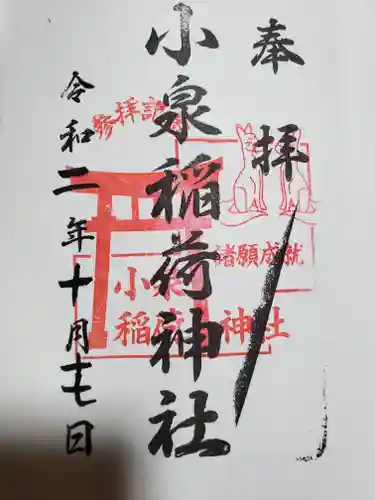 奉拝
小泉稲荷神社
令和二年十月十七日
参拝記
諸願成就
小泉
稲荷神社